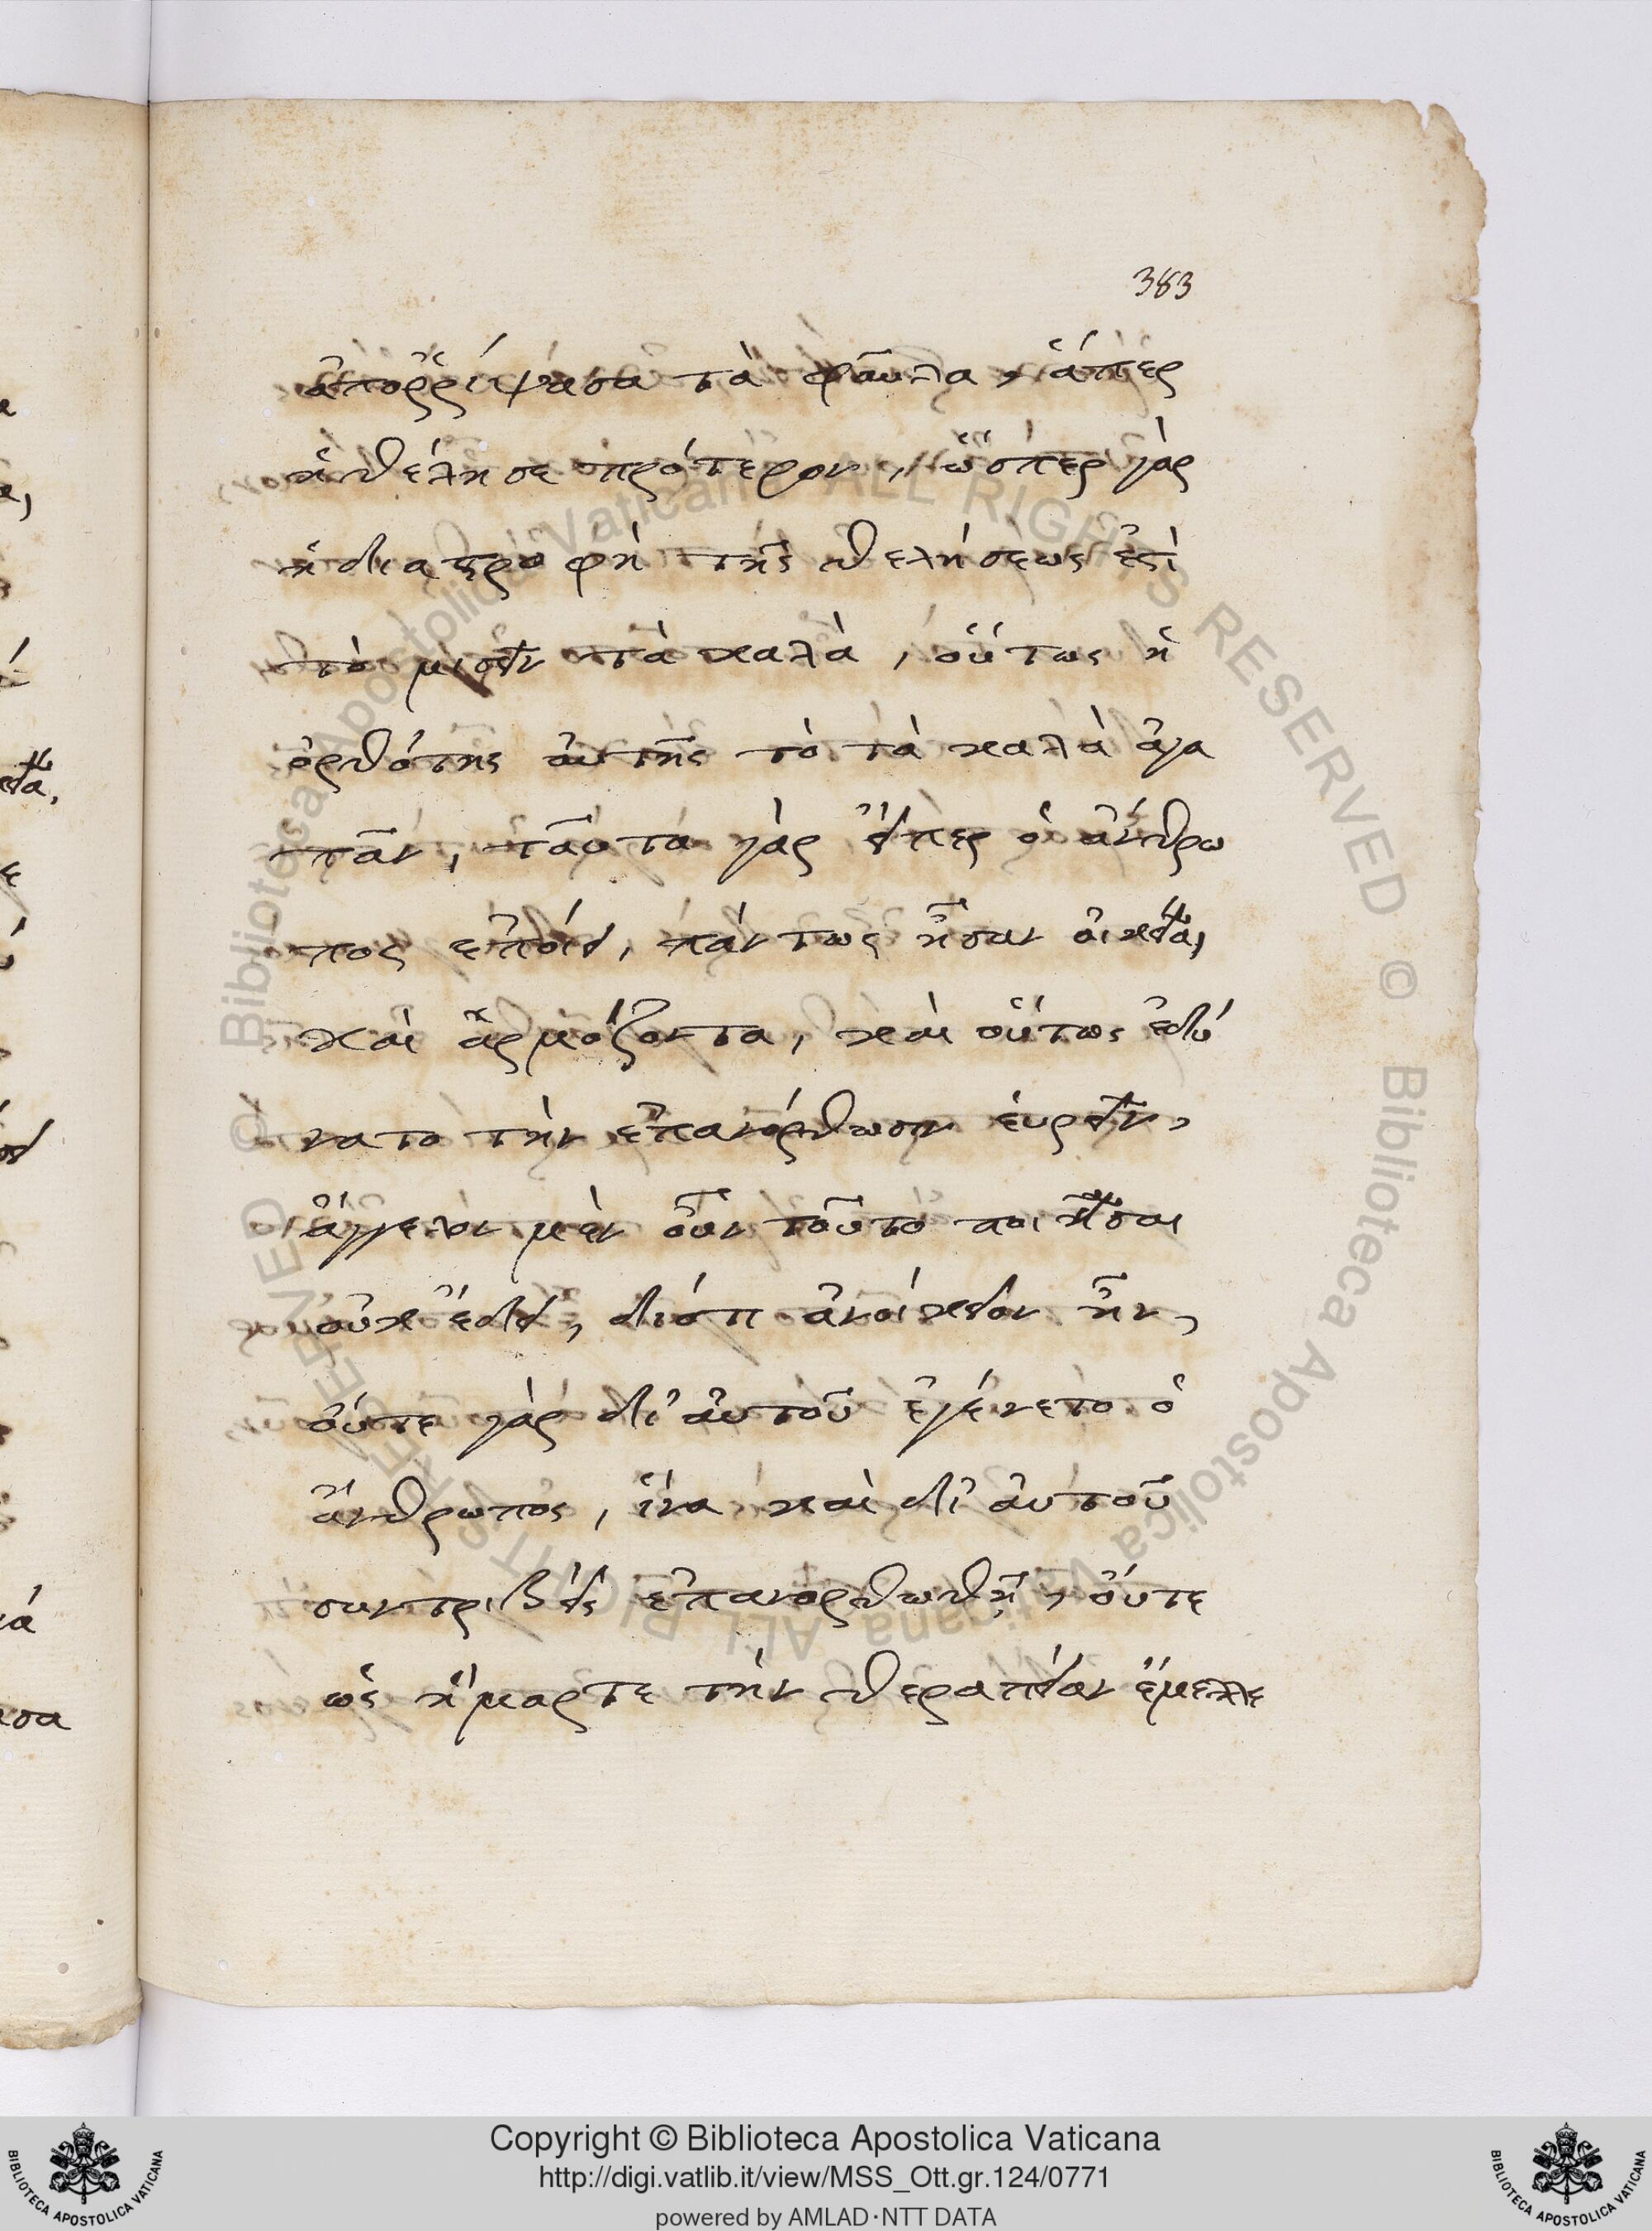 383
ἀποῤῥίψασα τὰ φαῦλα, ἅπερ
ἠθέλησε πρότερον, ὥσπερ γὰρ
ἡ διαστροφὴ τῆς θελήσεως ἐστὶ
τὸ μισεῖν τὰ καλὰ, οὕτως ἡ
ὀρθότης αὐτῆς τὸ τὰ καλὰ ἀγα
πᾶν, ταῦτα γὰρ εἴπερ ὁ ἄνθρω
πος ἐποίει, πάντως ἦσαν οἰκεῖα,
καὶ ἁρμόζοντα, καὶ οὕτως ἐδύ
νατο τὴν ἐπανόρθωσιν εὑρεῖν,
ἄγγελον μὲν οὖν τοῦτο ποιῆσαι
οὐκ ἔδει, διότι ἀνοίκειον ἦν,
οὔτε γὰρ δι' αὐτοῦ ἐγένετο ὁ
ἄνθρωπος, ἵνα καὶ δι' αὐτοῦ
συντριβεὶς ἐπανορθωθῇ, οὔτε
ὡς ἥμαρτε τὴν θεραπείαν ἔμελλε
Copyright © Biblioteca Apostolica Vaticana
http://digi.vatlib.it/view/MSS_Ott.gr.124/0771
powered by AMLAD·NTT DATA
BIBLIOTECA APOSTOLICA VATICANA
BIBLIOTECA APOSTOLICA VATICANA
© Biblioteca Apostolica Vaticana ALL RIGHTS RESERVED
© Biblioteca Apostolica Vaticana ALL RIGHTS RESERVED